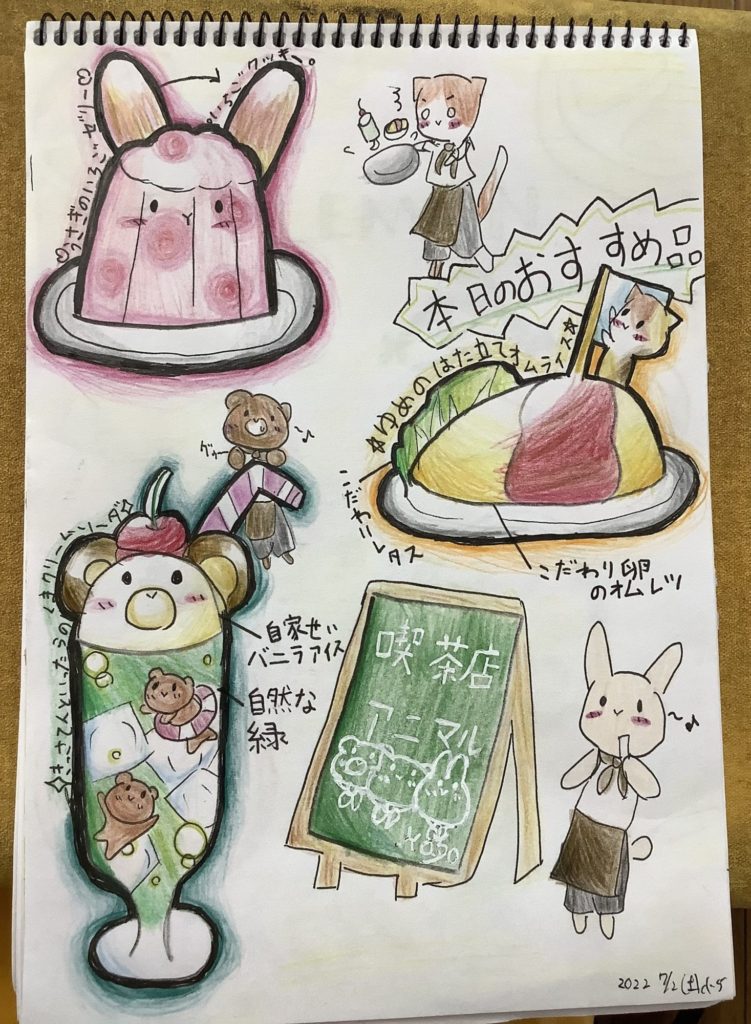 ♡うさぎのいちごゼリー♡
いちごクッキー。
本日のおすすめ品
☆ゆめのはた立てオムライス☆
こだわりレタス
こだわり卵
のオムレツ
グゥー
♪
☆きっさてんといったらのくまクリームソーダ☆
自家せい
バニラアイス
自然な
緑
喫茶店
アニマル
〜♪
2022 7/2(土)